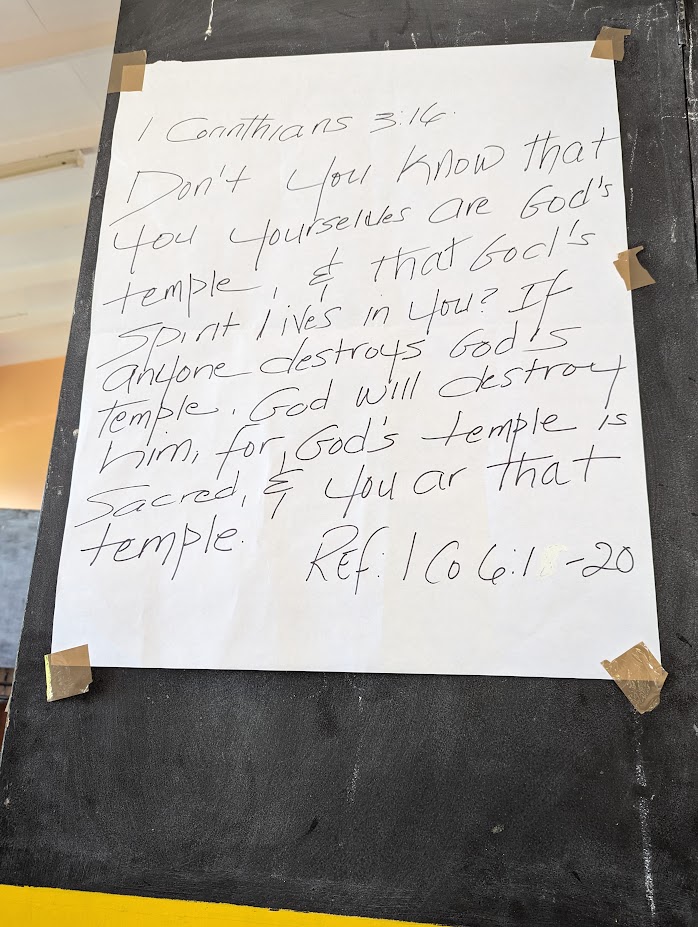 1 Corinthians 3:16.
Don't you know that
you yourselves are God's
temple, & that God's
Spirit lives in you? If
anyone destroys God's
temple. God will destroy
him, for God's temple is
Sacred, & you ar that
temple.
Ref: 1 Co 6:18-20